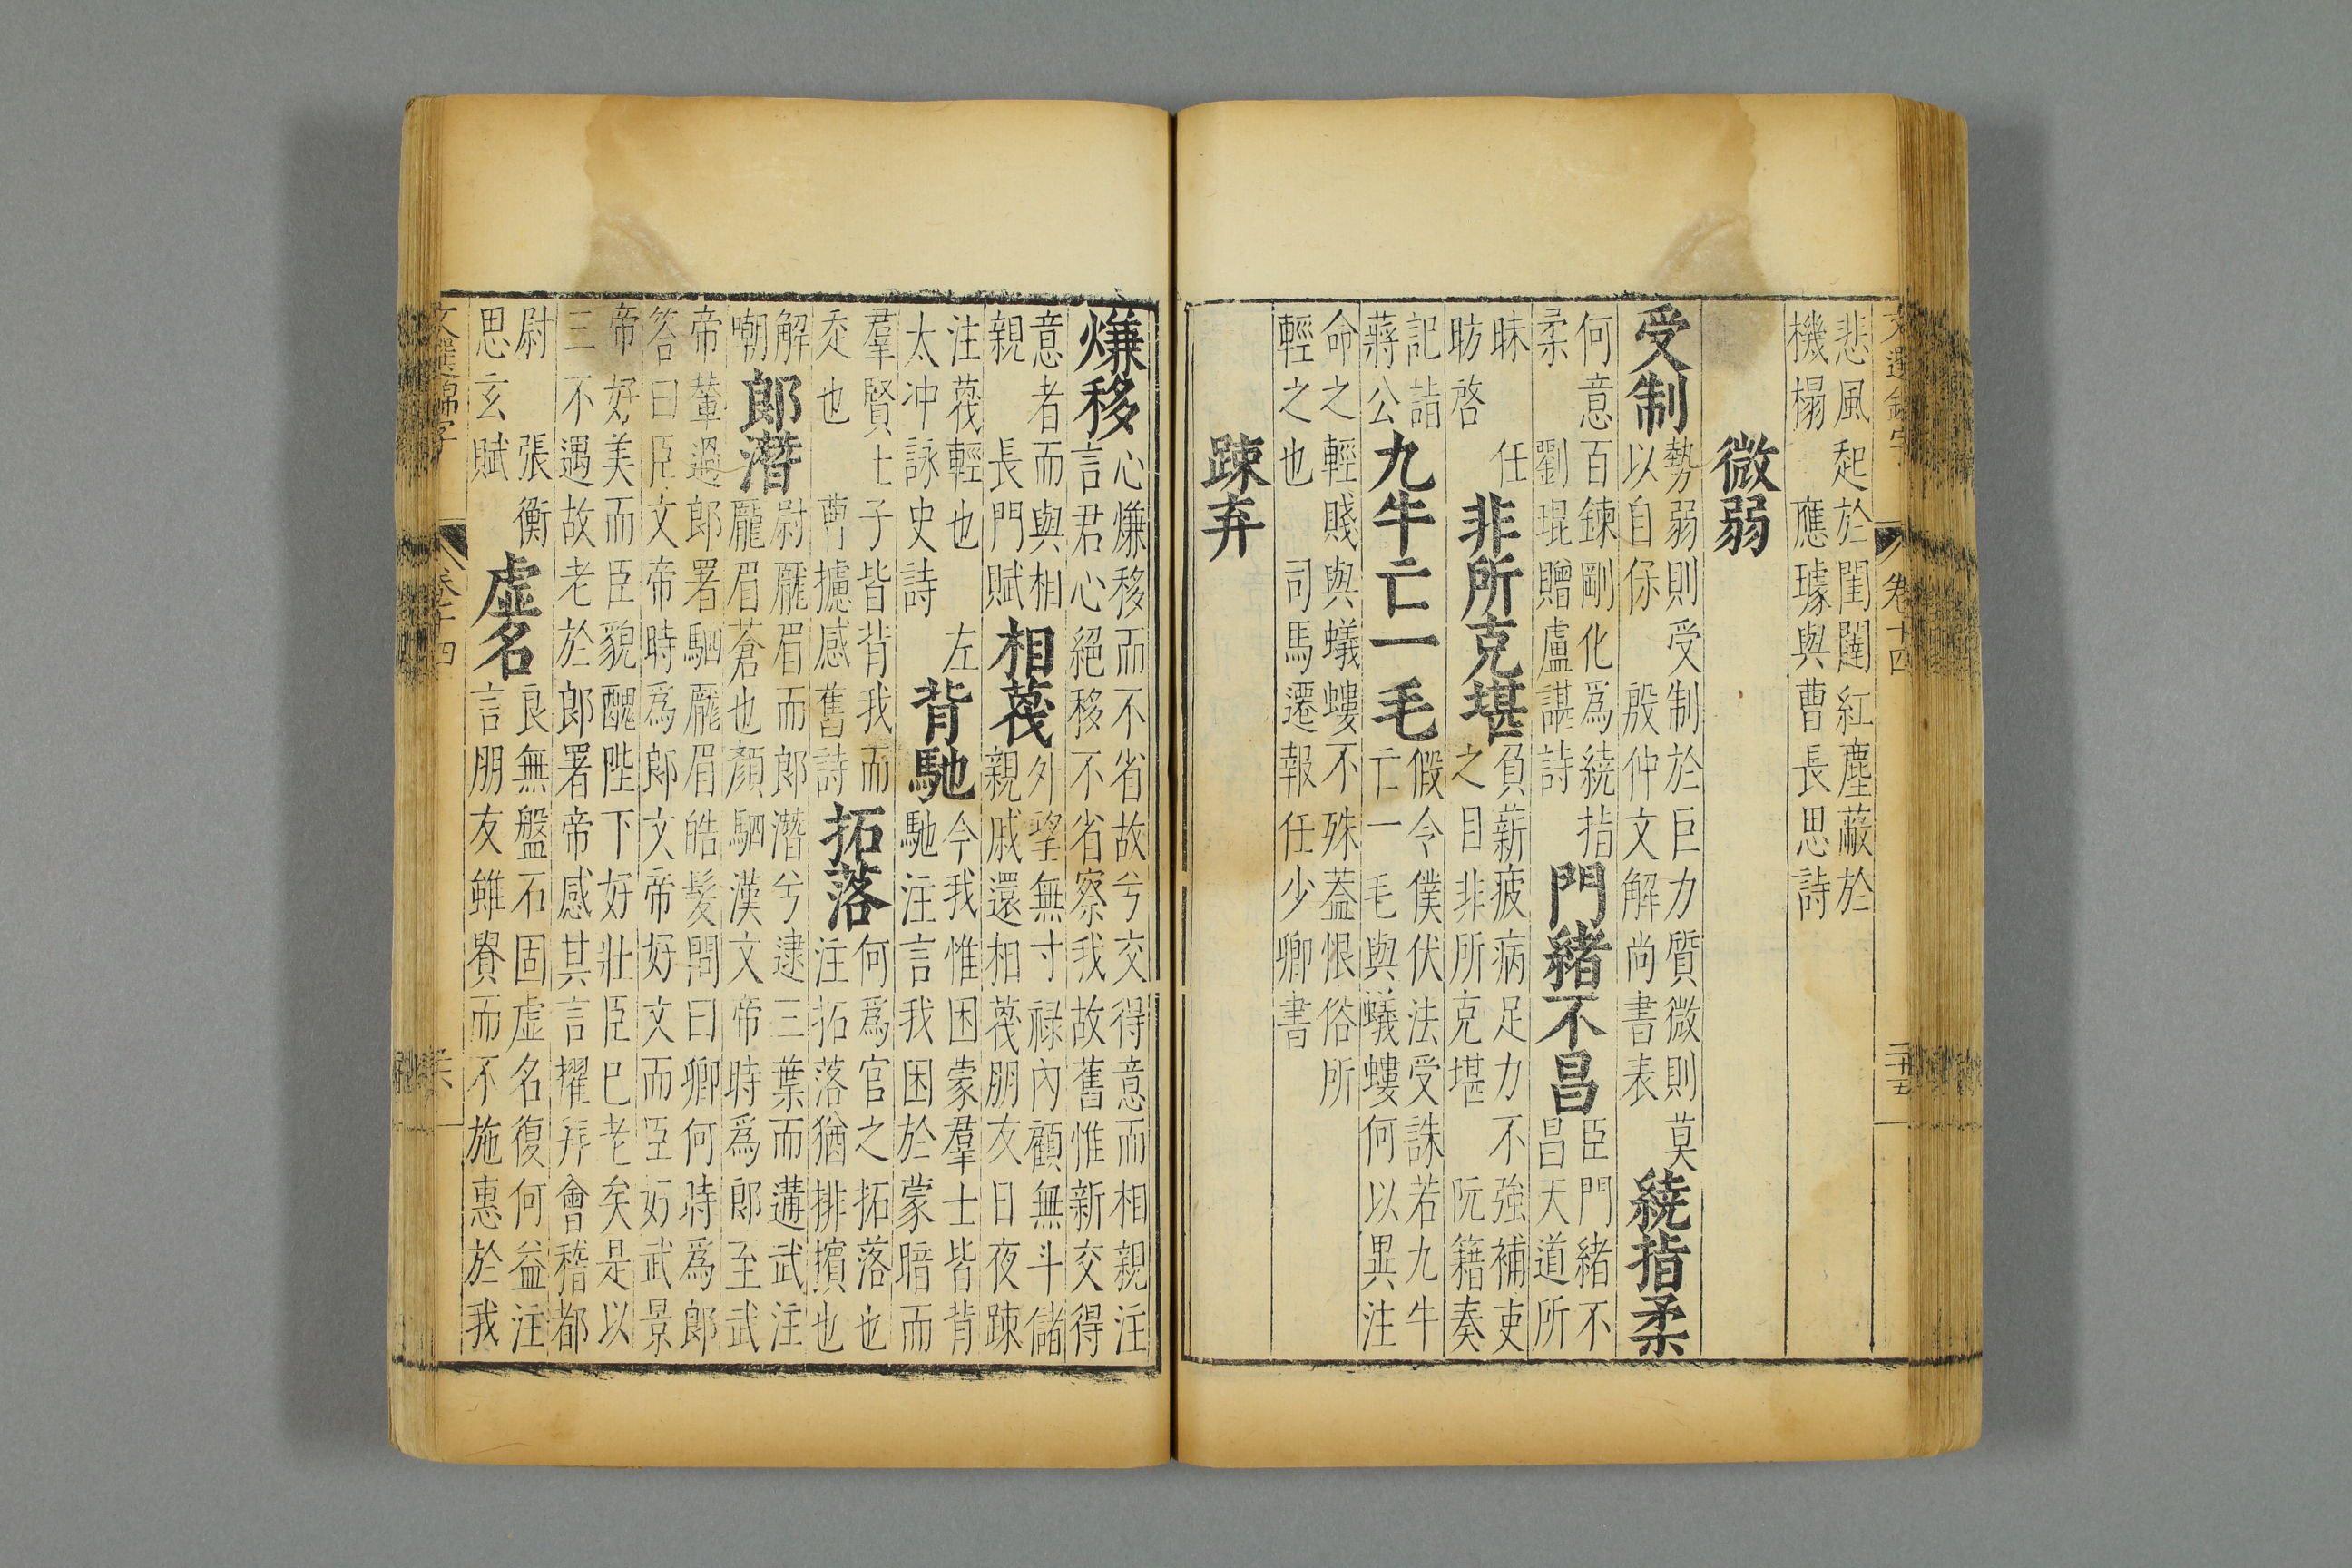 悲風起於閨闥紅塵蔽於
機榻　應璩與曹長思詩
微弱
受制
勢弱則受制於巨力質微則莫
以自保　殷仲文解尚書表
繞指柔
何意百鍊剛化爲繞指
柔　劉琨贈盧諶詩
門緒不昌
臣門緒不
昌天道所
昧　任
昉啓
非所克堪
負薪疲病足力不強補吏
之日非所克堪　阮籍奏
記詣
蔣公
九牛亡一毛
假令僕伏法受誅若九牛
亡一毛與蟻螻何以異注
命之輕賤與蟻螻不殊葢恨俗所
輕之也　司馬遷報任少卿書
踈弃
熑移
心熑移而不省故兮交得意而相親注
言君心絕移不省察我故舊惟新交得
意者而與相
親　長門賦
相蔑
外望無寸祿內顧無斗儲
親戚還相蔑朋友日夜踈
注蔑輕也　左
太冲詠史詩
背馳
今我惟困蒙羣士皆背
馳注言我困於蒙暗而
羣賢士子皆背我而
㐬也　曹攄感舊詩
拓落
何爲官之拓落也
注拓落猶排擯也
解
嘲
郎潛
尉厖眉而郎潛兮逮三葉而遘武注
厖眉蒼也顏駟漢文帝時爲郎至武
帝輦過郎署駟厖眉皓髮問曰卿何時爲郎
答曰臣文帝時爲郎文帝好文而臣好武景
帝好美而臣貌醜陛下好壯臣巳老矣是以
三不遇故老於郎署帝感其言擢拜會稽都
尉　張衡
思玄賦
虛名
良無盤石固虛名復何益注
言朋友雖貴而不施惠於我